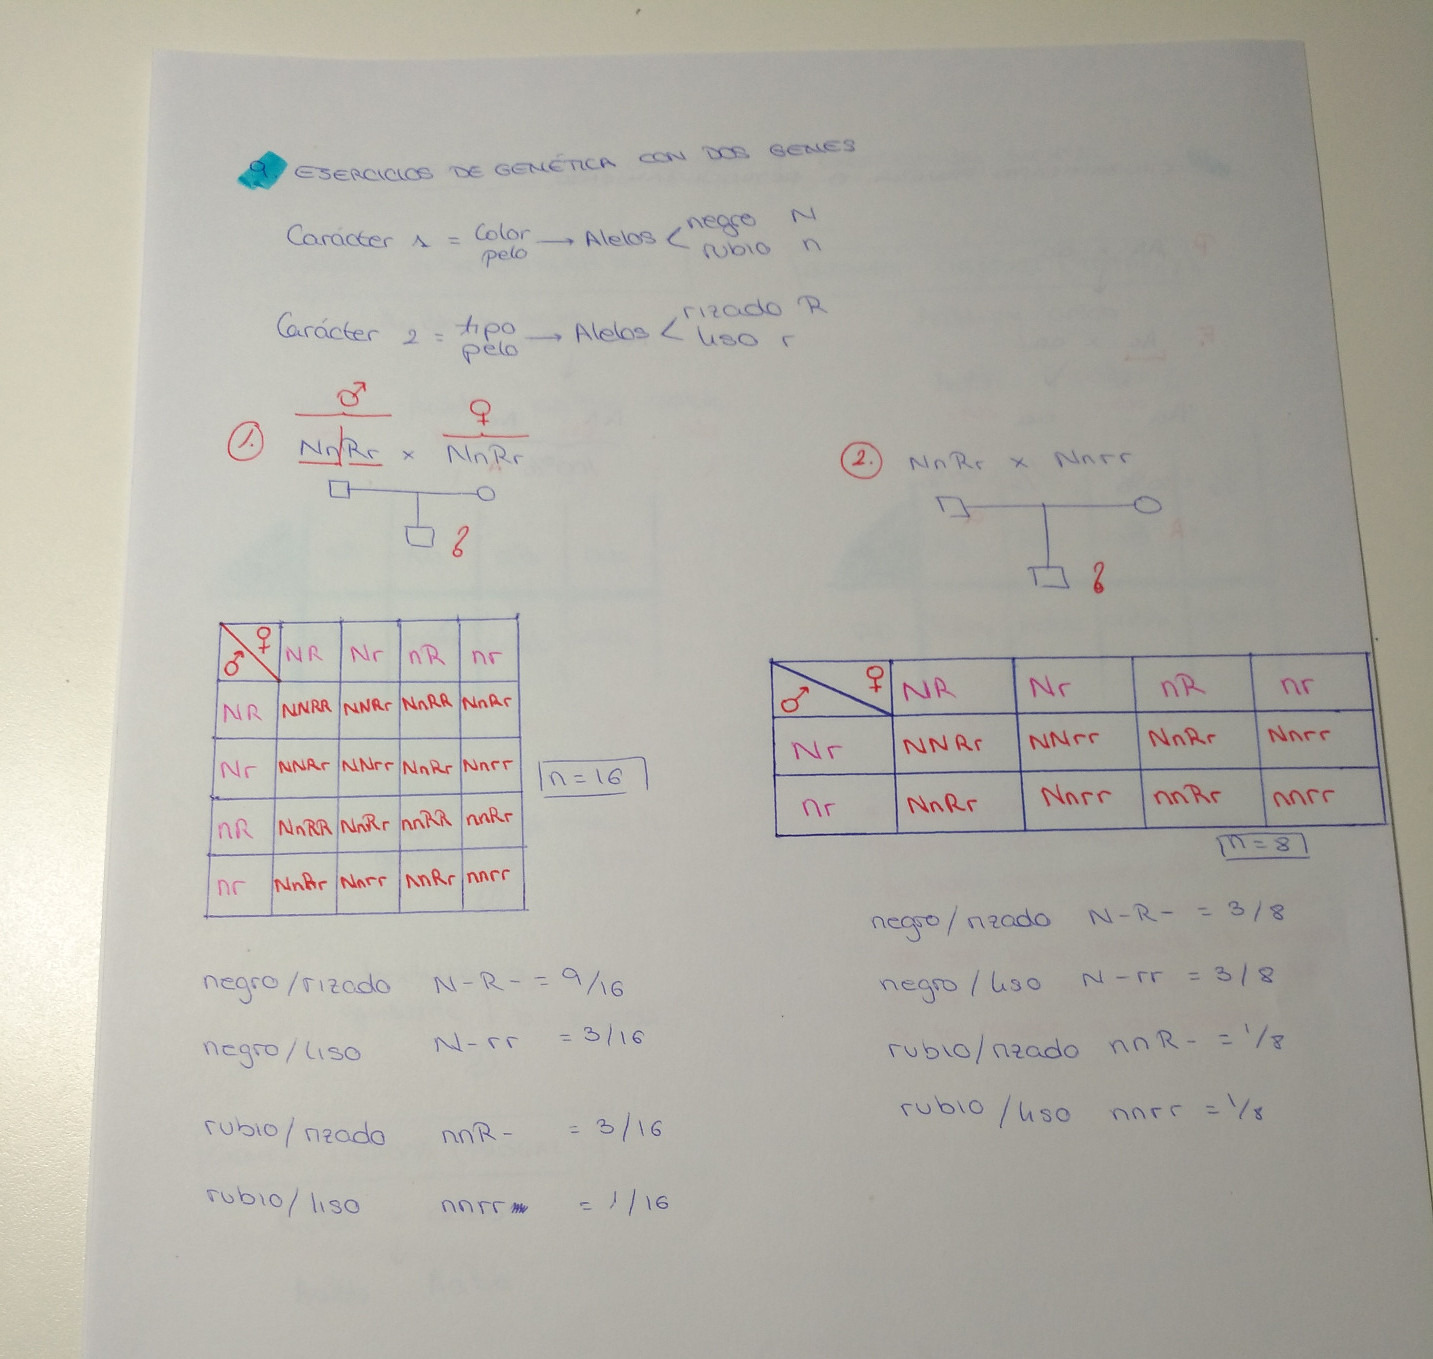 9. EJERCICIOS DE GENÉTICA CON DOS GENES
Carácter 1 = Color pelo → Alelos < negro N
rubio n
Carácter 2 = tipo pelo → Alelos < rizado R
liso r
♂ ♀
1. NnRr × NnRr
?
♀ ♂ NR Nr nR nr
NR NNRR NNRr NnRR NnRr
Nr NNRr NNrr NnRr Nnrr
nR NnRR NnRr nnRR nnRr
nr NnRr Nnrr nnRr nnrr
n = 16
negro/rizado N-R- = 9/16
negro/liso N-rr = 3/16
rubio/rizado nnR- = 3/16
rubio/liso nnrr = 1/16
2. NnRr × Nnrr
?
♀ ♂ NR Nr nR nr
Nr NNRr NNrr NnRr Nnrr
nr NnRr Nnrr nnRr nnrr
n = 8
negro/rizado N-R- = 3/8
negro/liso N-rr = 3/8
rubio/rizado nnR- = 1/8
rubio/liso nnrr = 1/8